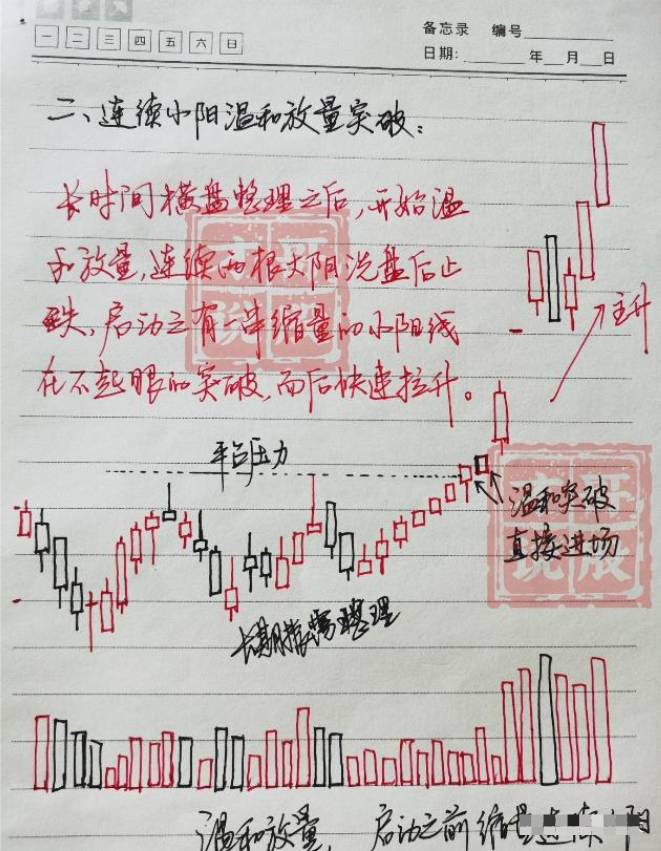 一 二 三 四 五 六 日
备忘录 编号
日期: 年 月 日
二、连续小阳温和放量突破：
长时间横盘整理之后，开始温
和放量，连续两根大阳洗盘后止
跌，启动之有一串缩量的小阳线
在不起眼的突破，而后快速拉升。
主升
平台压力
温和突破
直接进场
长期横盘整理
温和放量， 启动之前缩量连续小阳